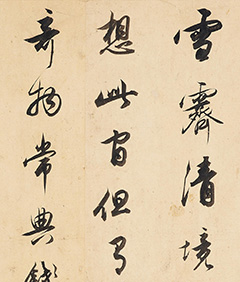 雪霽清境
想此間但有
奇物常典